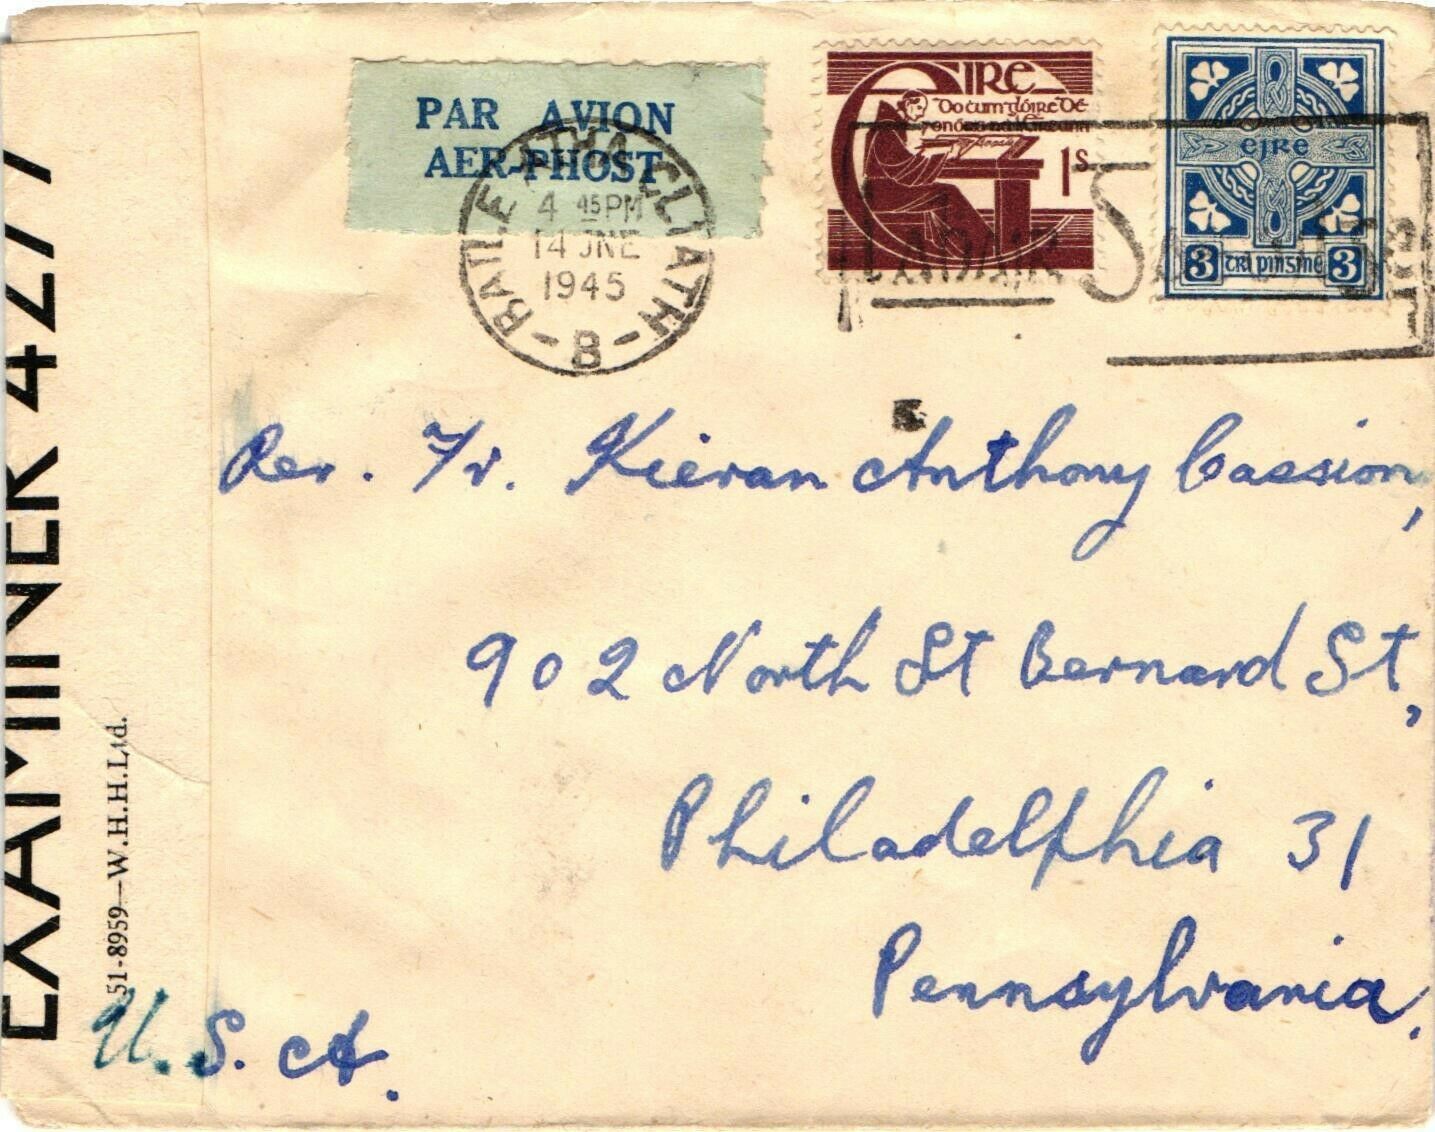 PAR AVION
AER-PHOST
BAILE ÁTHA CLIATH
4 45PM
14 JNE
1945
B
EIRE
Do cum glóire Dé
7 onóra na hÉireann
1s
eire
3 trí pinsine 3
Rev. Fr. Kieran Anthony Cassion,
902 North St Bernard St,
Philadelphia 31
Pennsylvania.
U. S. A.
EXAMINER 4277
51-8959—W.H.H.Ltd.